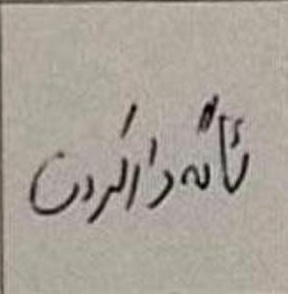 ئاگەدارکردن